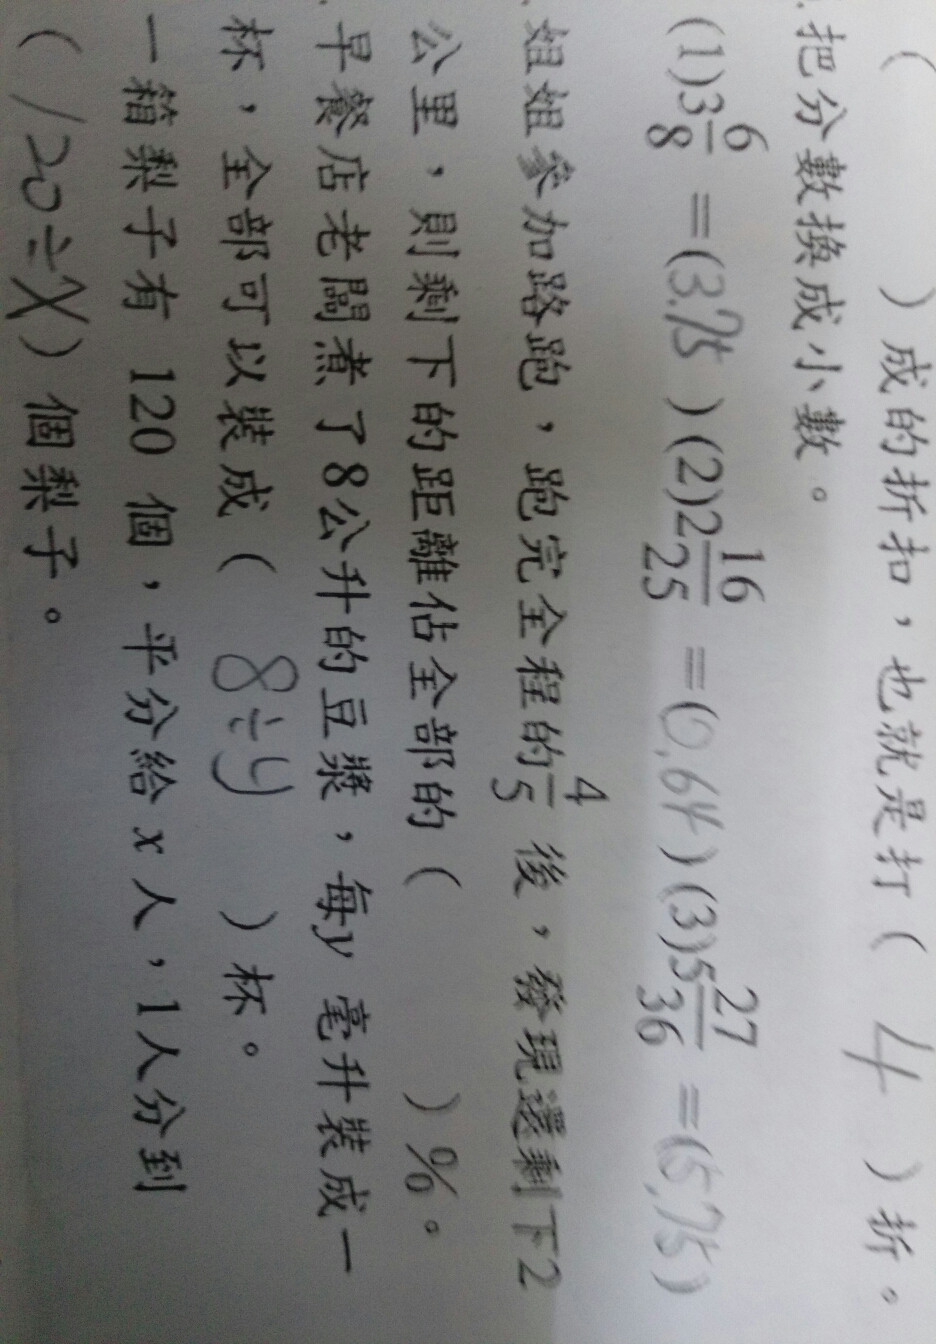 ( ) 成的折扣，也就是打 ( 4 ) 折。
把分數換成小數。
(1)3 6/8 =(3.75) (2)2 16/25 =(0.64) (3)5 27/36 =(5.75)
姐姐參加路跑，跑完全程的 4/5 後，發現還剩下2
公里，則剩下的距離佔全部的 ( ) %。
早餐店老闆煮了8公升的豆漿，每y 毫升裝成一
杯，全部可以裝成 ( 8÷y ) 杯。
一箱梨子有 120 個，平分給 x 人，1人分到
( 120÷X ) 個梨子。